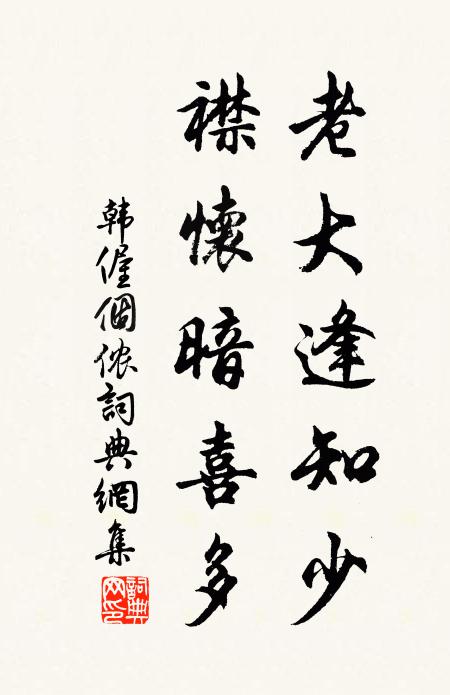 老大逢知少
襟懷暗喜多
韩偓個侬詞典網集
詞典网印